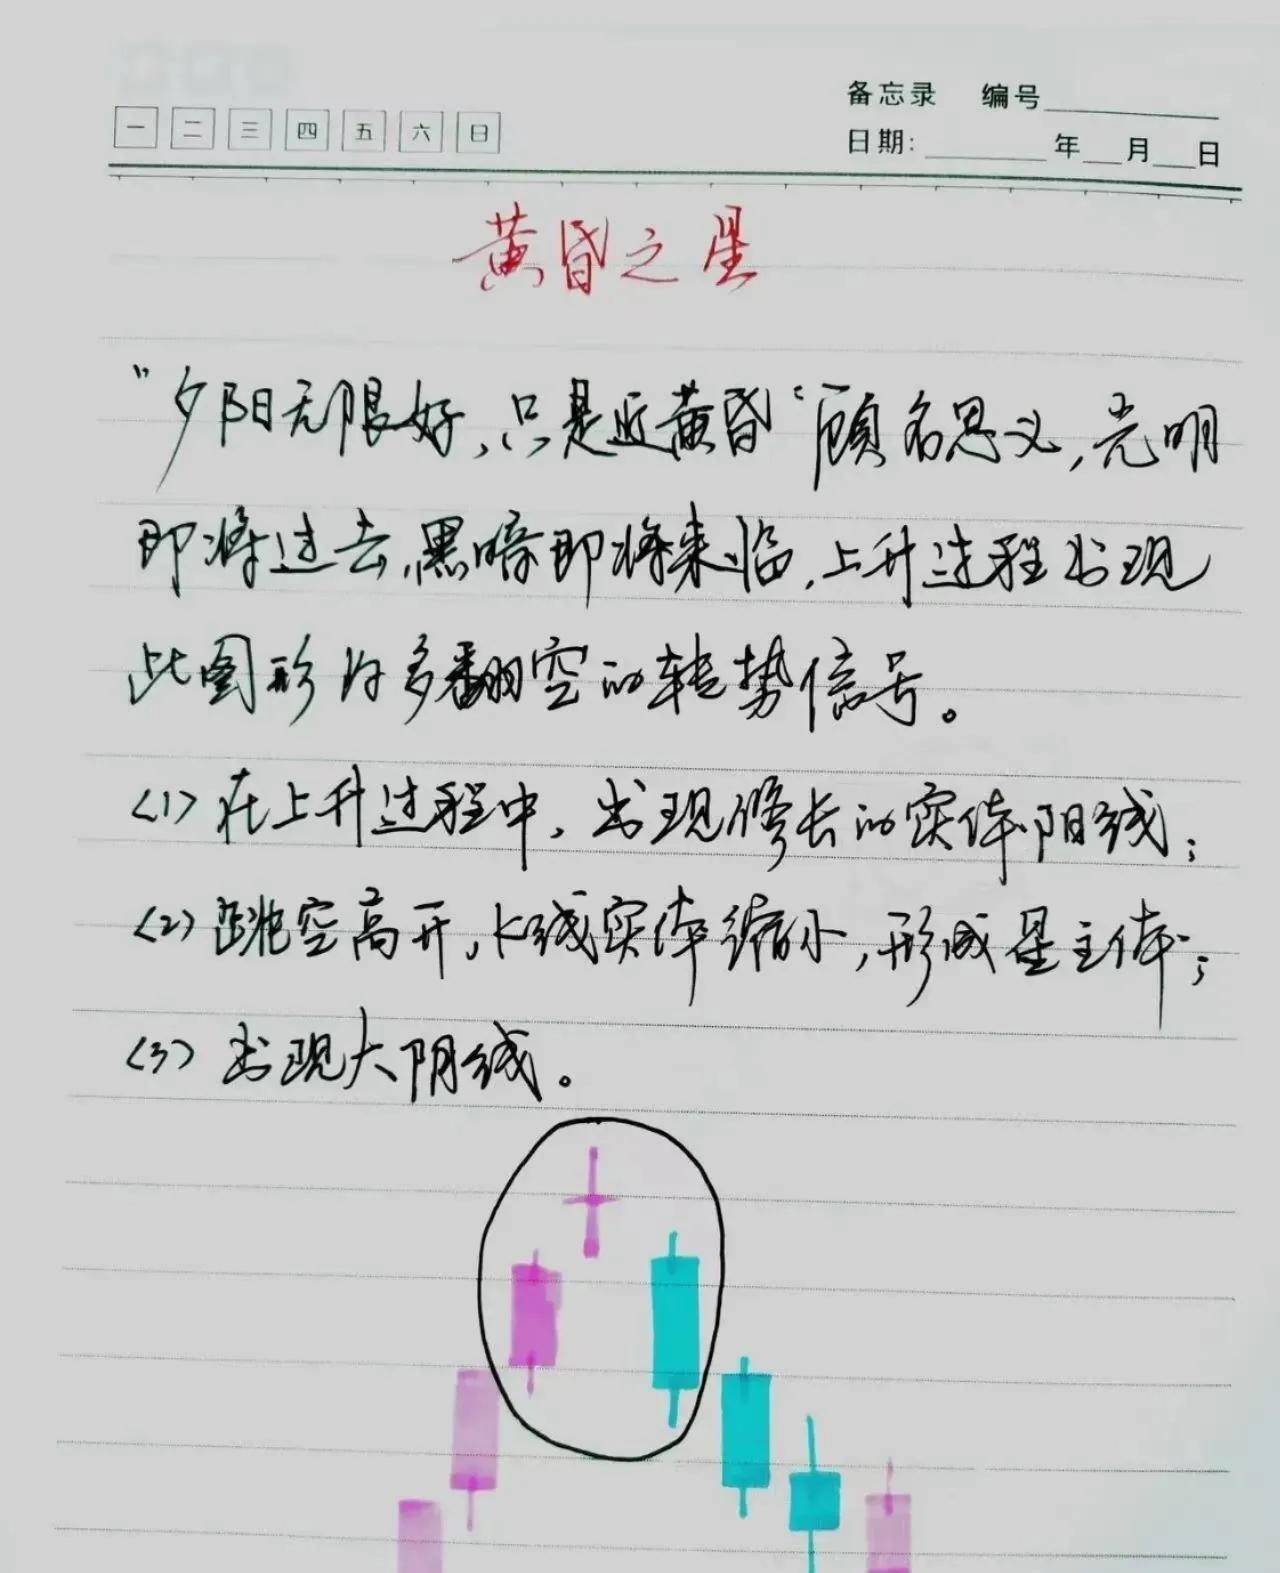 备忘录 编号
一 二 三 四 五 六 日
日期: 年 月 日
黄昏之星
"夕阳无限好,只是近黄昏"顾名思义,光明
即将过去,黑暗即将来临,上升过程出现
此图形为多翻空的转势信号。
(1)在上升过程中,出现修长的实体阳线;
(2)跳空高开,K线实体缩小,形成星主体;
(3)出现大阴线。